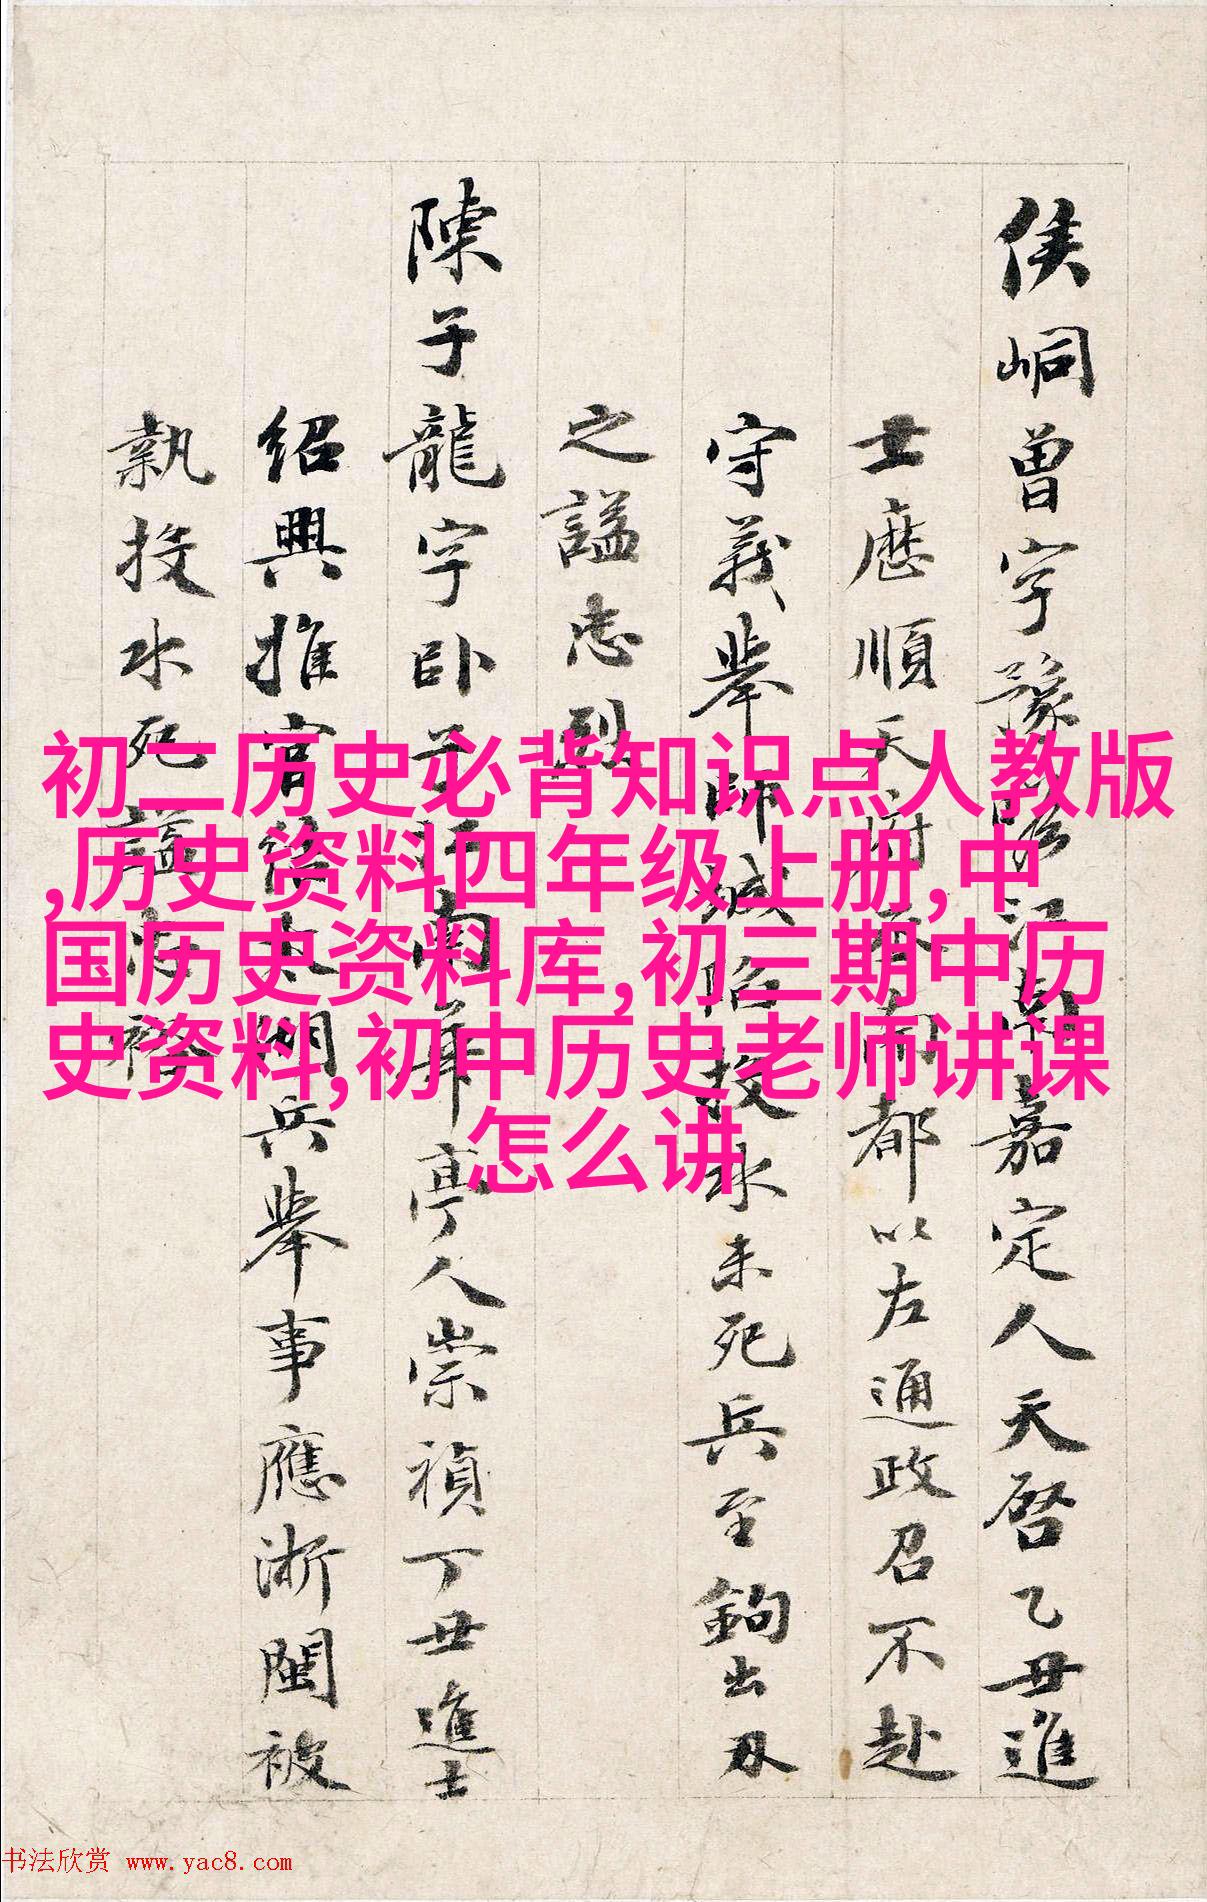 侯峒曾字豫瞻江南嘉定人天啓乙丑進
士歷順天府丞南都以左通政召不赴
守義舉師城陷投水未死兵至鉤出刃
之諡忠烈
陳子龍字卧子江南華亭人崇禎丁丑進士
紹興推官結太湖兵舉事應浙閩被
執投水死諡忠裕
初二历史必背知识点人教版
,历史资料四年级上册,中
国历史资料库,初三期中历
史资料,初中历史老师讲课
怎么讲
书法欣赏 www.yac8.com